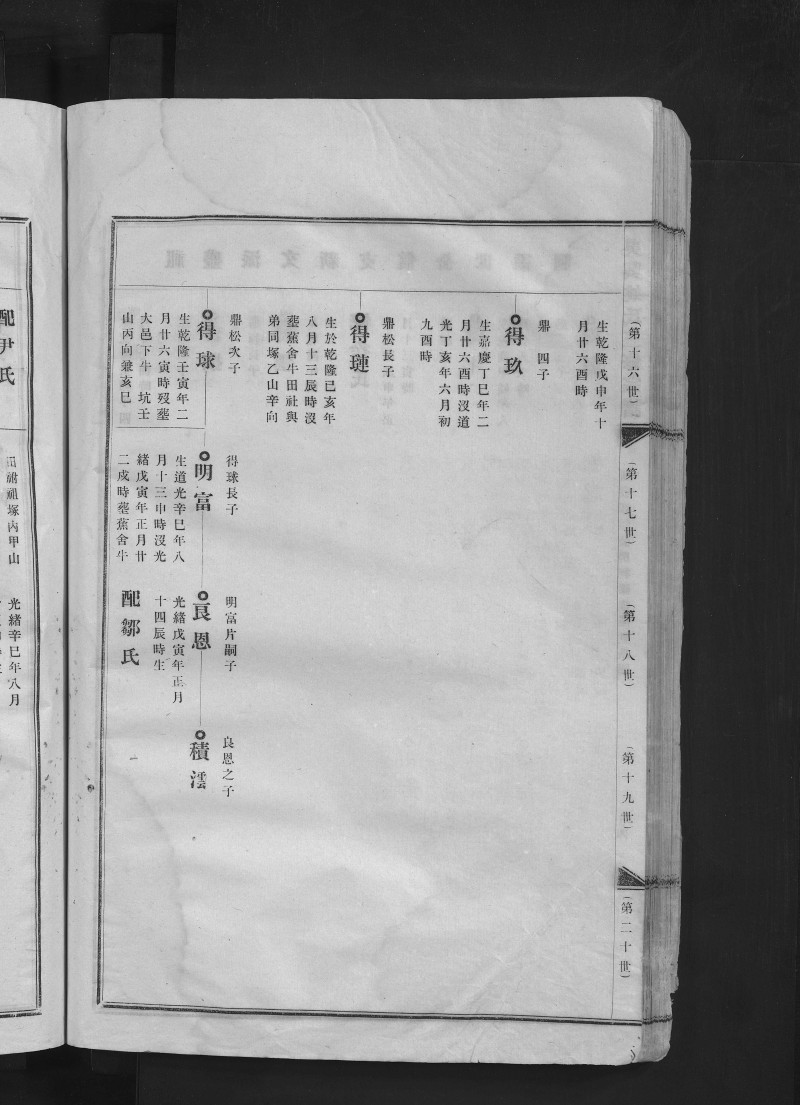 (第十六世)
(第十七世)
(第十八世)
(第十九世)
(第二十世)
生乾隆戊申年十
月廿六酉時
鼎 四子
得玖
生嘉慶丁巳年二
月廿六酉時沒道
光丁亥年六月初
九酉時
鼎松長子
得璉
生於乾隆己亥年
八月十三辰時沒
塟蕉舍牛田社與
弟同塚乙山辛向
鼎松次子
得球
生乾隆壬寅年二
月廿六寅時歿塟
大邑下牛坑壬
山丙向兼亥巳
得球長子
明富
生道光辛巳年八
月十三申時沒光
緒戊寅年正月廿
二戍時塟蕉舍牛
明富片嗣子
良恩
光緒戊寅年正月
十四辰時生
配鄒氏
良恩之子
積澐
配尹氏
祖塚內甲山
光緒辛巳年八月